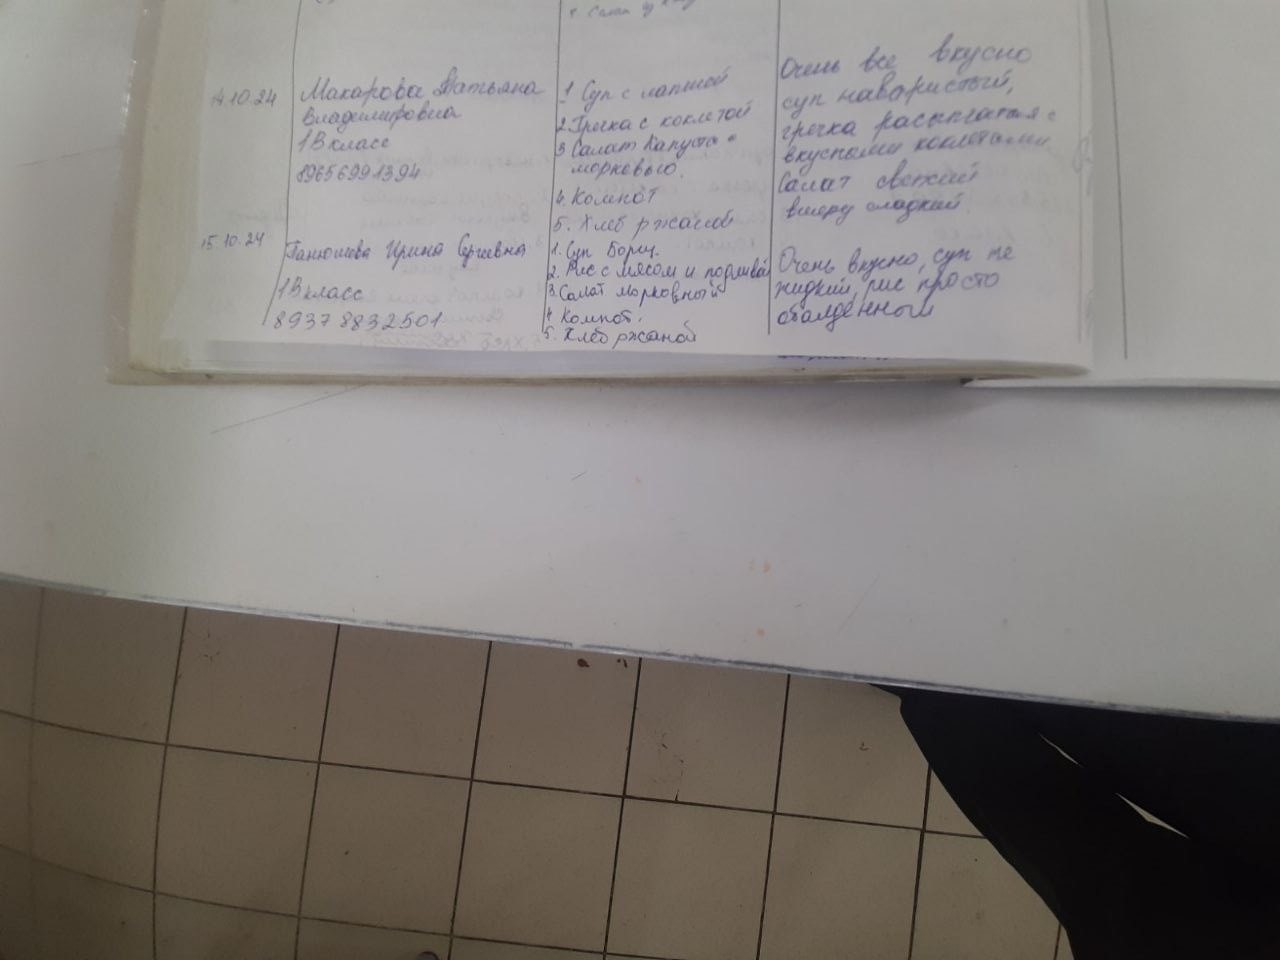 14.10.24
Макарова Татьяна
Владимировна
1В класс
89656991394
1 Суп с лапшой
2. Гречка с коклетой
3 Салат Капуста с
морковью.
4. Компот
5. Хлеб ржаной
Очень все вкусно
суп наваристый,
гречка рассыпчатая с
вкусными коклетами
Салат свежий
в меру сладкий.
15.10.24
Ирина Сергеевна
1В класс
8937 8832501
1. Суп Борщ.
2. Рис с мясом и подливой
3. Салат морковный
4 Компот.
5. Хлеб ржаной
Очень вкусно, суп не
жидкий, рис просто
обалденный